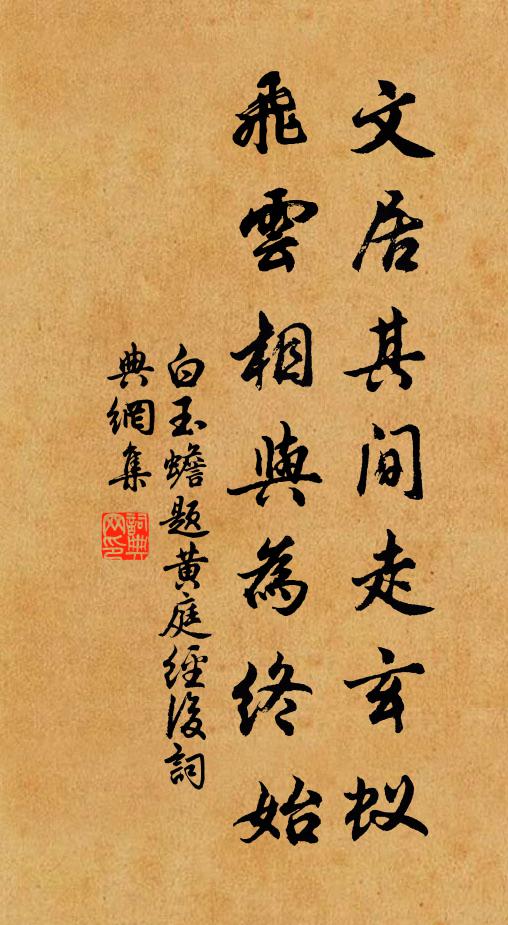 文居其間走玄蚁
飛雲相與為終始
白玉蟾題黄庭經後詞
典網集
詞典
网印